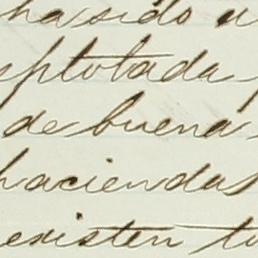 ha sido u
splotada
de buena
haciendas
existen tu